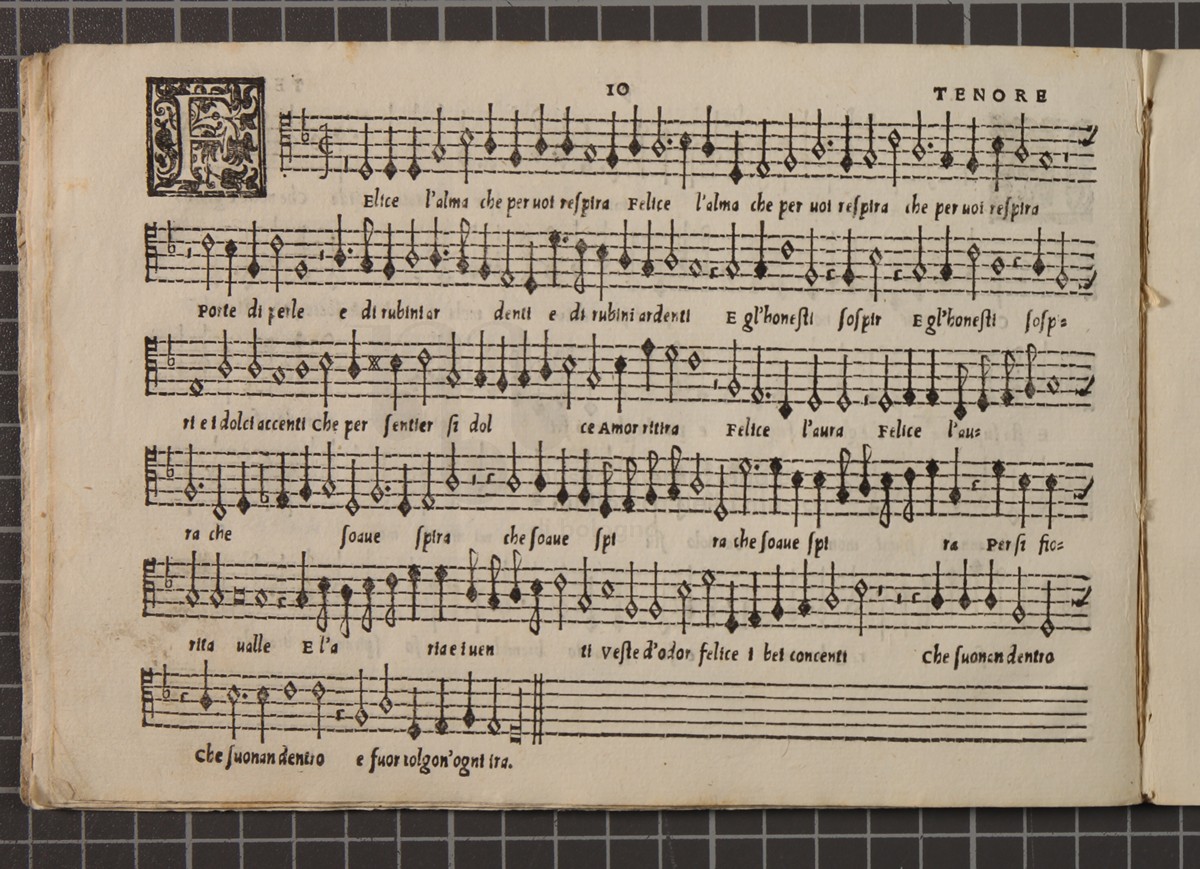 10
TENORE
F Elice l'alma che per uoi reſpira Felice l'alma che per uoi reſpira che per uoi reſpira
Porte di perle e di rubini ar denti e di rubini ardenti E gl'honeſti ſoſpir E gl'honeſti ſoſp=
ri e i dolci accenti Che per ſentier ſi dol ce Amor ritira Felice l'aura Felice l'au=
ra che ſoaue ſpira che ſoaue ſpi ra che ſoaue ſpi ra Per ſi fio=
rita ualle E l'a ria e i uen ti Veſte d'odor felice i bei concenti Che ſuonan dentro
Che ſuonan dentro e fuor tolgon' ogni ira.